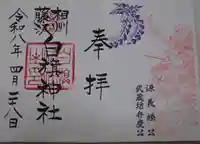 奉拝
相州
藤沢
白旗神社
令和八年四月二十八日
源義経公
武蔵坊弁慶公